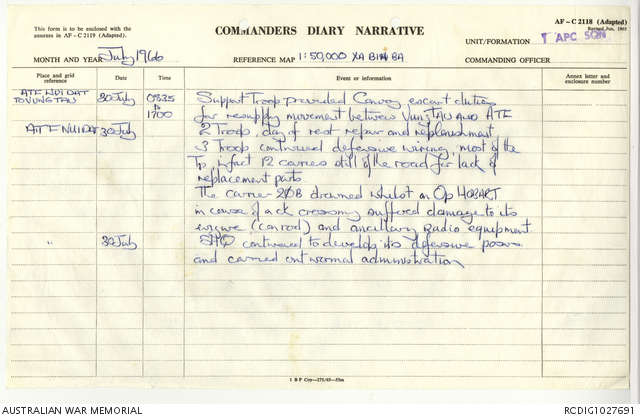 This form is to be enclosed with the
annexes in AF - C 2119 (Adapted).
COMMANDERS DIARY NARRATIVE
AF - C 2118 (Adapted)
Revised Jun, 1965
MONTH AND YEAR July 1966
REFERENCE MAP 1:50,000 XA BA
UNIT/FORMATION 1 APC SQN
COMMANDING OFFICER
Place and grid
reference
Date
Time
Event or information
Annex letter and
enclosure number
ATF NUI DAT
TO VUNG TAU
30 July
0835
to
1700
Support Troop provided Convoy escort duties
for resupply movement between Vung TAU AND ATF
ATF NUI DAT 30 July
2 Troop, day of rest repair and replenishment
3 Troop continued defensive wiring, most of the
Tp, infact 12 carriers still of the road for lack of
replacement parts.
The carrier 20B drowned whilst on Op HOBART
in course of a ck crossing suffered damage to its
engine (conrod) and ancillary radio equipment
" 30 July
SHQ continued to develop its defensive posns
and carried out normal administration
1 B P Coy
AUSTRALIAN WAR MEMORIAL
RCDIG1027691